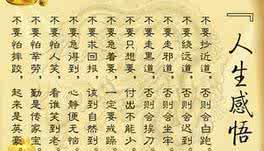 『人生感悟
不要抄近道，否则会白跑。
不要绕远道，否则会迟到。
不要走黑道，否则会坐牢。
不要走邪道，否则会挨刀。
不要只想要，付出不能少。
不要急着要，一定要戒躁。
不要求回报，该到自然到。
不要急得到，心解便无恼。
不要怕人笑，看谁笑到老。
不要怕辛劳，勤是传家宝。
不要怕摔跤，起来是英豪。